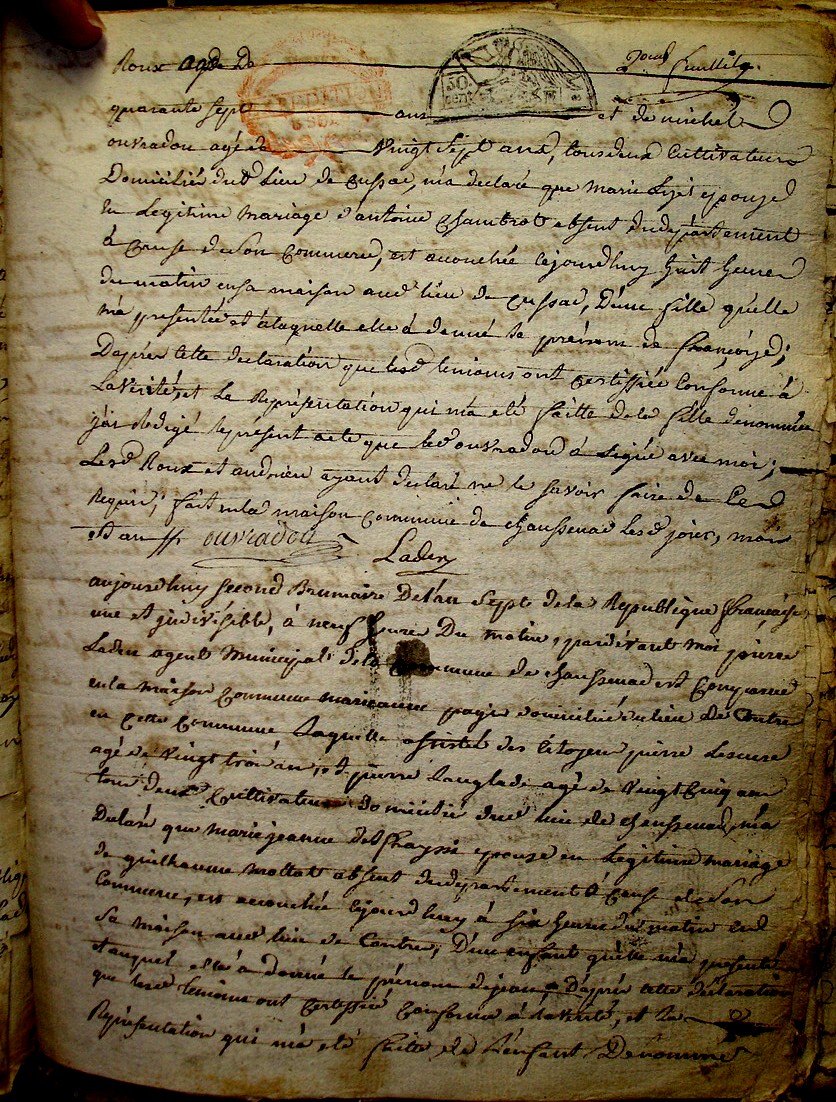 2eme feuillet.
Roux agé de
quarante sept ans et de michel
ouvradou agé de vingt sept ans, tous deux Cultivateurs
Domiciliés dud. lieu de Cussac, m'a declaré que marie lizet epouze
en Legitime mariage d'antoine Chambrot absent du departement
à Cause de son Commerce, est accouchée cejourdhuy huit heures
du matin en sa maison aud. lieu de Cussac, D'une fille qu'elle
m'a presentée et à laquelle elle à donné le prenom de françoize;
Daprés Cette declaration que lesd. temoins ont Certiffiée Conforme à
La Verité, et La Représentation qui m'a eté faitte de la fille denommée
j'ai Redigé le present acte que led. ouvradou à signé avec moi;
Lesd. Roux et andrieu ayant declaré ne le savoir faire de Ce
Requis; fait en la maison Commune de chaussenac Lesd. jour, mois
et an
ouvradou Laden
aujourdhuy second Brumaire De l'an Sept de la Republique française
une et indivisible, à neuf heures Du matin, pardevant moi pierre
Laden agent Municipal de la Commune de chaussenac est Comparue
en la maison Commune marieanne pagis domiciliée du lieu de Contre
en Cette Commune Laquelle assistée des Citoyens pierre Lescure
agé de vingt trois ans, et pierre Langlade agé de vingt Cinq ans
tous deux Cultivateurs domiciliés dud. lieu de chaussenac, m'a
Declaré que marie jeanne epouze en Legitime mariage
de guilhaume mottat absent du departement à Cause de son
Commerce, est accouchée cejourdhuy à six heures du matin en
sa maison aud. lieu de Contre, D'un enfant qu'elle m'a presenté
et auquel elle à donné le prénom de jean, D'aprés Cette declaration
que lesd. temoins ont Certiffié Conforme à la verité, et la
Représentation qui m'a eté faitte de L'enfant Denommé